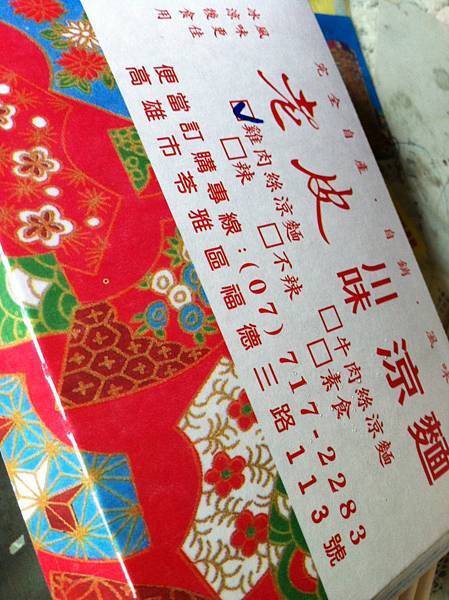 完全自產·自銷·風味
老皮川味涼麵
☑雞肉絲涼麵 □牛肉絲涼麵
□辣 □不辣 □素食
冰涼後食用
風味更佳
便當訂購專線:(07)717-2283
高雄市苓雅區福德三路113號